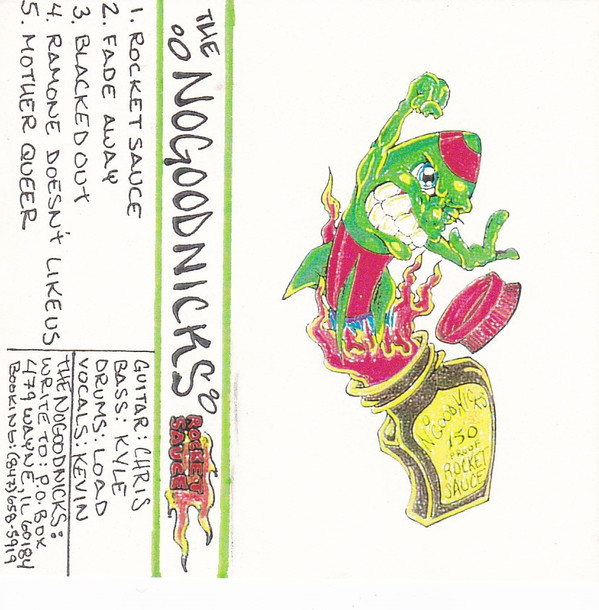 1. ROCKET SAUCE
2. FADE AWAY
3. BLACKED OUT
4. RAMONE DOESN'T LIKE US
5. MOTHER QUEER
GUITAR: CHRIS
BASS: KYLE
DRUMS: LOAD
VOCALS: KEVIN
THE NOGOODNICKS:
WRITE TO: P.O. BOX
479 WAYNE, IL 60184
BOOKING: (847) 658-5919
THE NOGOODNICKS
ROCKET
SAUCE
NOGOODNICKS
150
PROOF
ROCKET
SAUCE